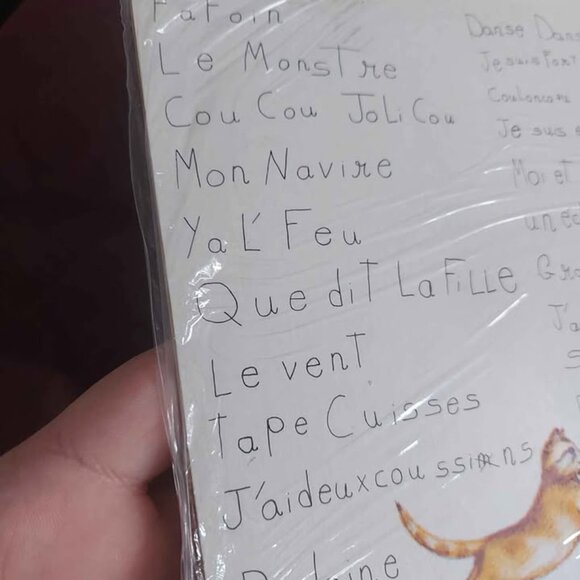 Fafoin
Le Monstre
Cou Cou JoLi Cou
Mon Navire
Ya L' Feu
Que dit La FiLLe
Le vent
Tape Cuisses
J'aideuxcoussins
Danse Dans
Je suis Fort
Je suis
Moi et